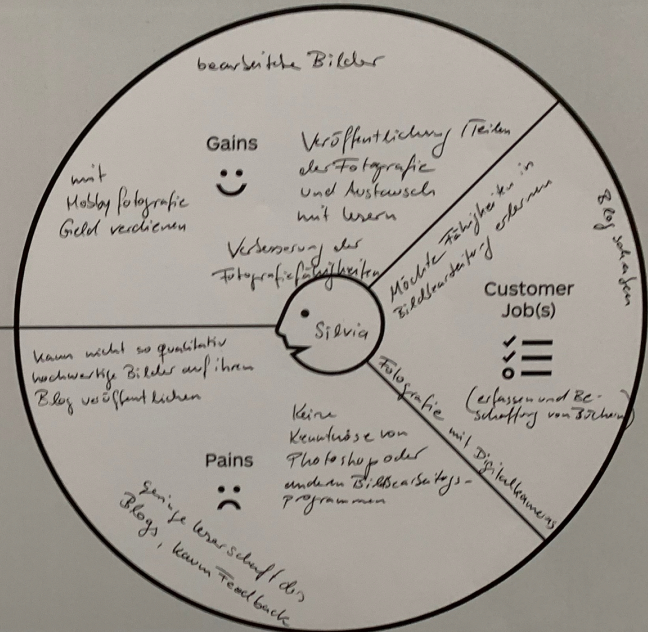 bearbeitete Bilder
Gains
Veröffentlichung / Teilen
der Fotografie
und Austausch
mit Lesern
mit
Hobbyfotografie
Geld verdienen
Verbesserung der
Fotografiefähigkeiten
Möchte Fähigkeiten in
Bildbearbeitung erlernen
Blog
Customer
Job(s)
(erfassen und Be-
schaffung von Büchern)
Fotografie mit Digitalkameras
Silvia
kann nicht so qualitativ
hochwertige Bilder auf ihren
Blog veröffentlichen
Pains
Keine
Kenntnisse von
Photoshop oder
anderen Bildbearbeitungs-
programmen
geringe Leserschaft des
Blogs, kaum Feedback